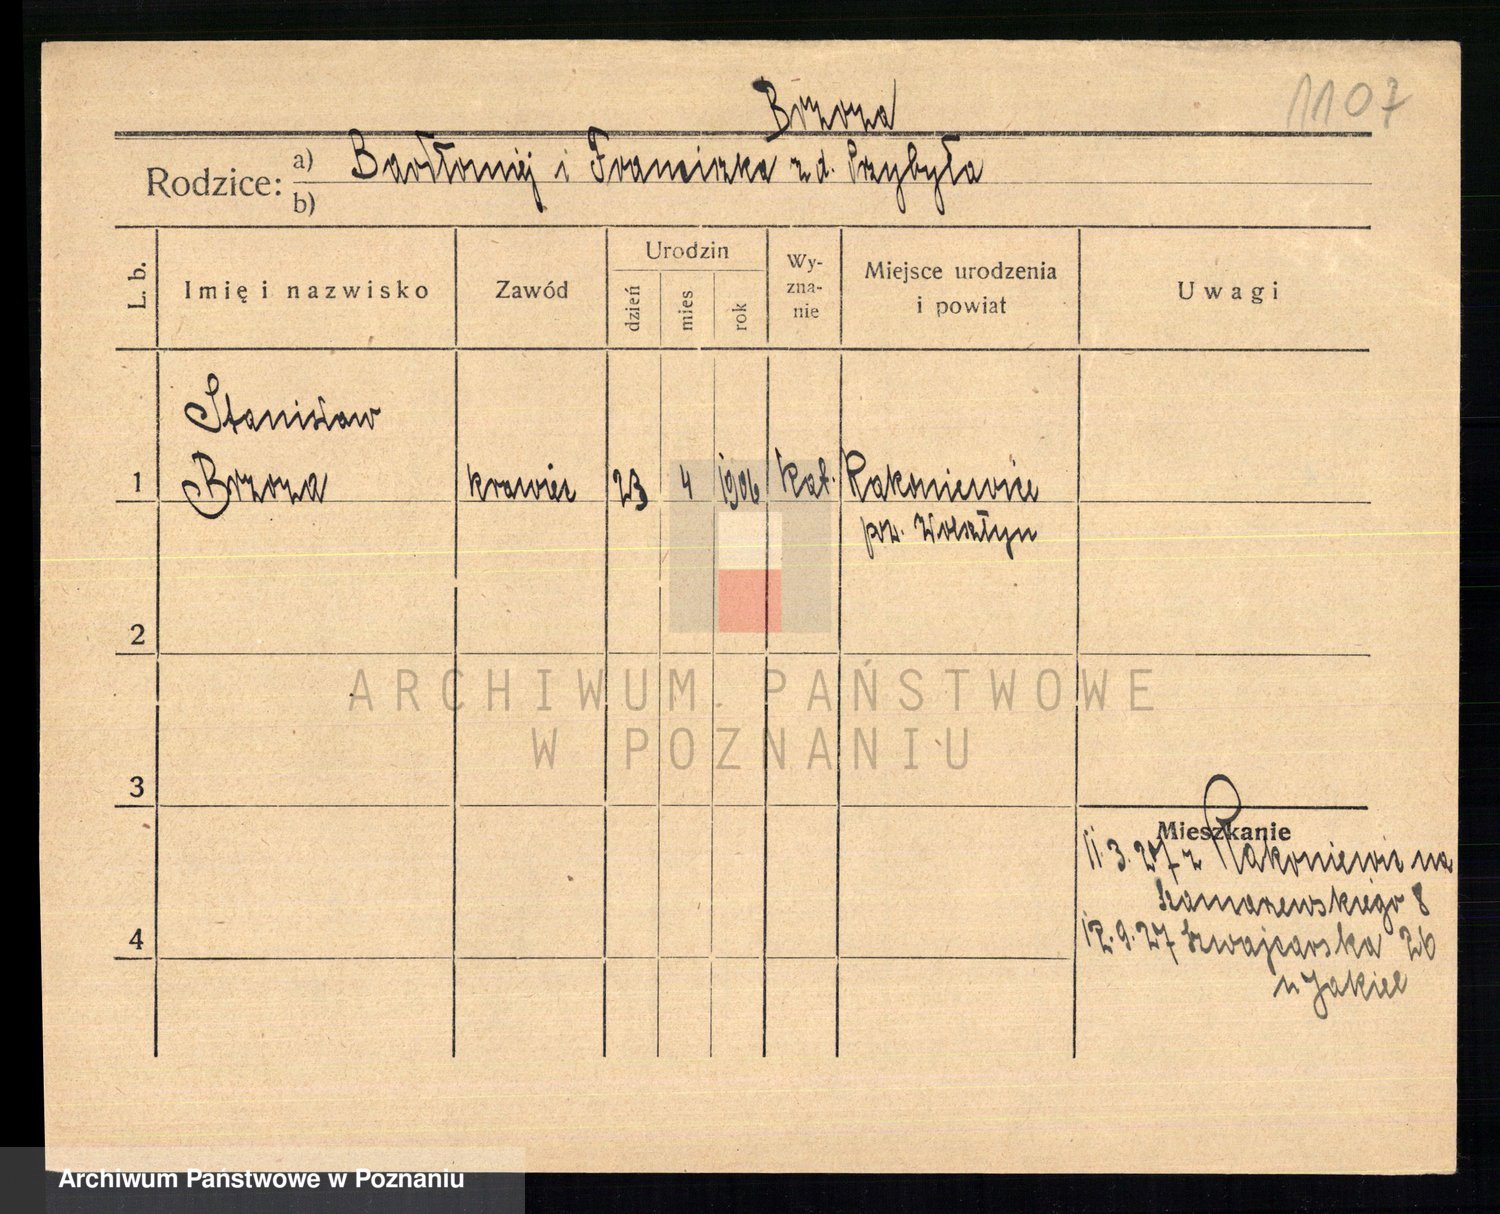 1107
Brzoza
Rodzice:
a) Bartłomiej i Franciszka z d. Przybyła
b)
L. b.
Imię i nazwisko
Zawód
Urodzin
dzień
mies
rok
Wy-
zna-
nie
Miejsce urodzenia
i powiat
Uwagi
Stanisław
1 Brzoza krawiec 23 4 1906 kat. Rakoniewice
pow. Wolsztyn
2
ARCHIWUM PAŃSTWOWE
W POZNANIU
3
Mieszkanie
11.3.27 z Rakoniewic na
Szamarzewskiego 8
12.9.27 Szwajcarska 26
u Jakiel
4
Archiwum Państwowe w Poznaniu